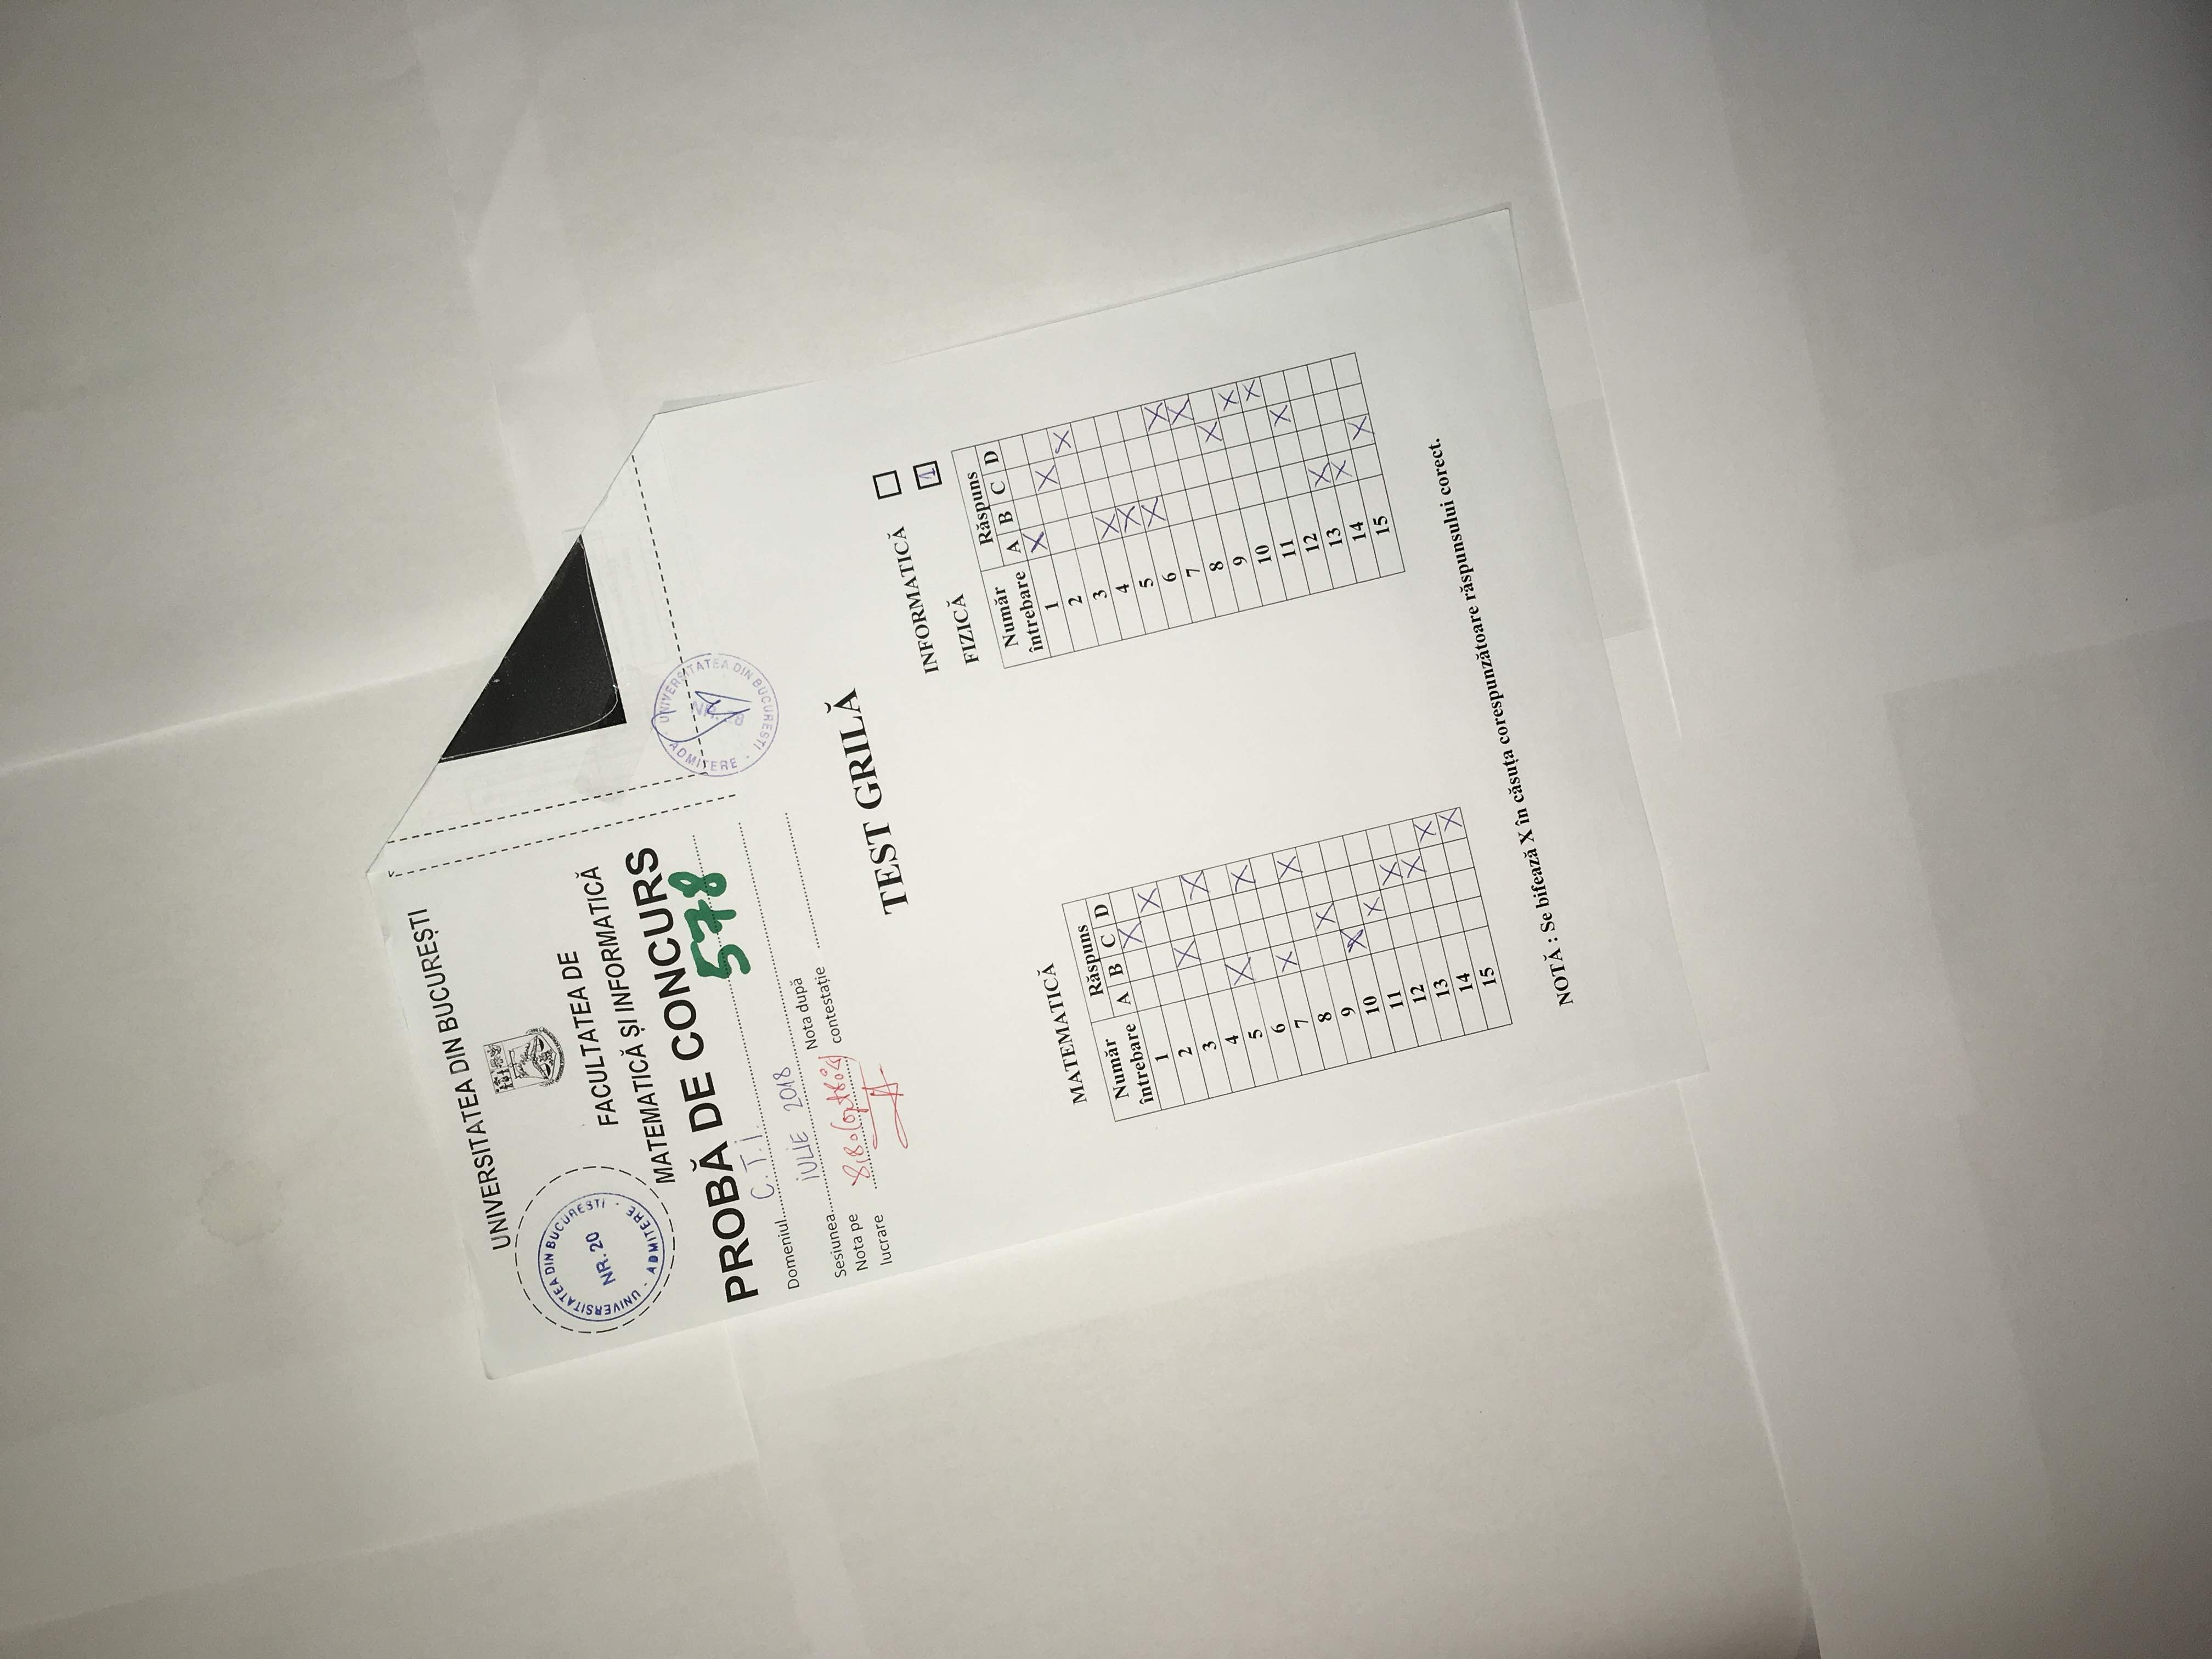 UNIVERSITATEA DIN BUCUREȘTI
UNIVERSITATEA DIN BUCUREȘTI · ADMITERE ·
NR. 20
FACULTATEA DE
MATEMATICĂ ȘI INFORMATICĂ
PROBĂ DE CONCURS
578
Domeniul C.T.I.
Sesiunea IULIE 2018
Nota pe lucrare 8,80
Nota după contestație
UNIVERSITATEA DIN BUCURESTI · ADMITERE ·
TEST GRILĂ
INFORMATICĂ
FIZICĂ 1
MATEMATICĂ
Număr întrebare Răspuns
A B C D
1 X
2 X
3 X
4 X
5 X
6 X
7 X
8 X
9 X
10 X
11 X
12 X
13 X
14 X
15 X
Număr întrebare Răspuns
A B C D
1 X
2 X
3 X
4 X
5 X
6 X
7 X
8 X
9 X
10 X
11 X
12 X
13 X
14 X
15 X
NOTĂ : Se bifează X în căsuța corespunzătoare răspunsului corect.